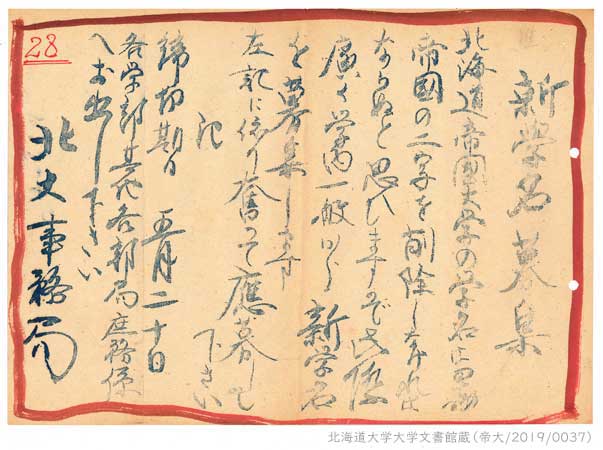 28
新学名募集
北海道帝國大学の学名
帝國の二字を削除しなければ
ならぬと思ひますので此際
廣く学内一般から新学名
を募集します
左記に依り奮って應募して
下さい
記
締切期日 五月二十日
各学部其他各部局庶務係
へお出し下さい
北大事務局
北海道大学大学文書館蔵(帝大/2019/0037)